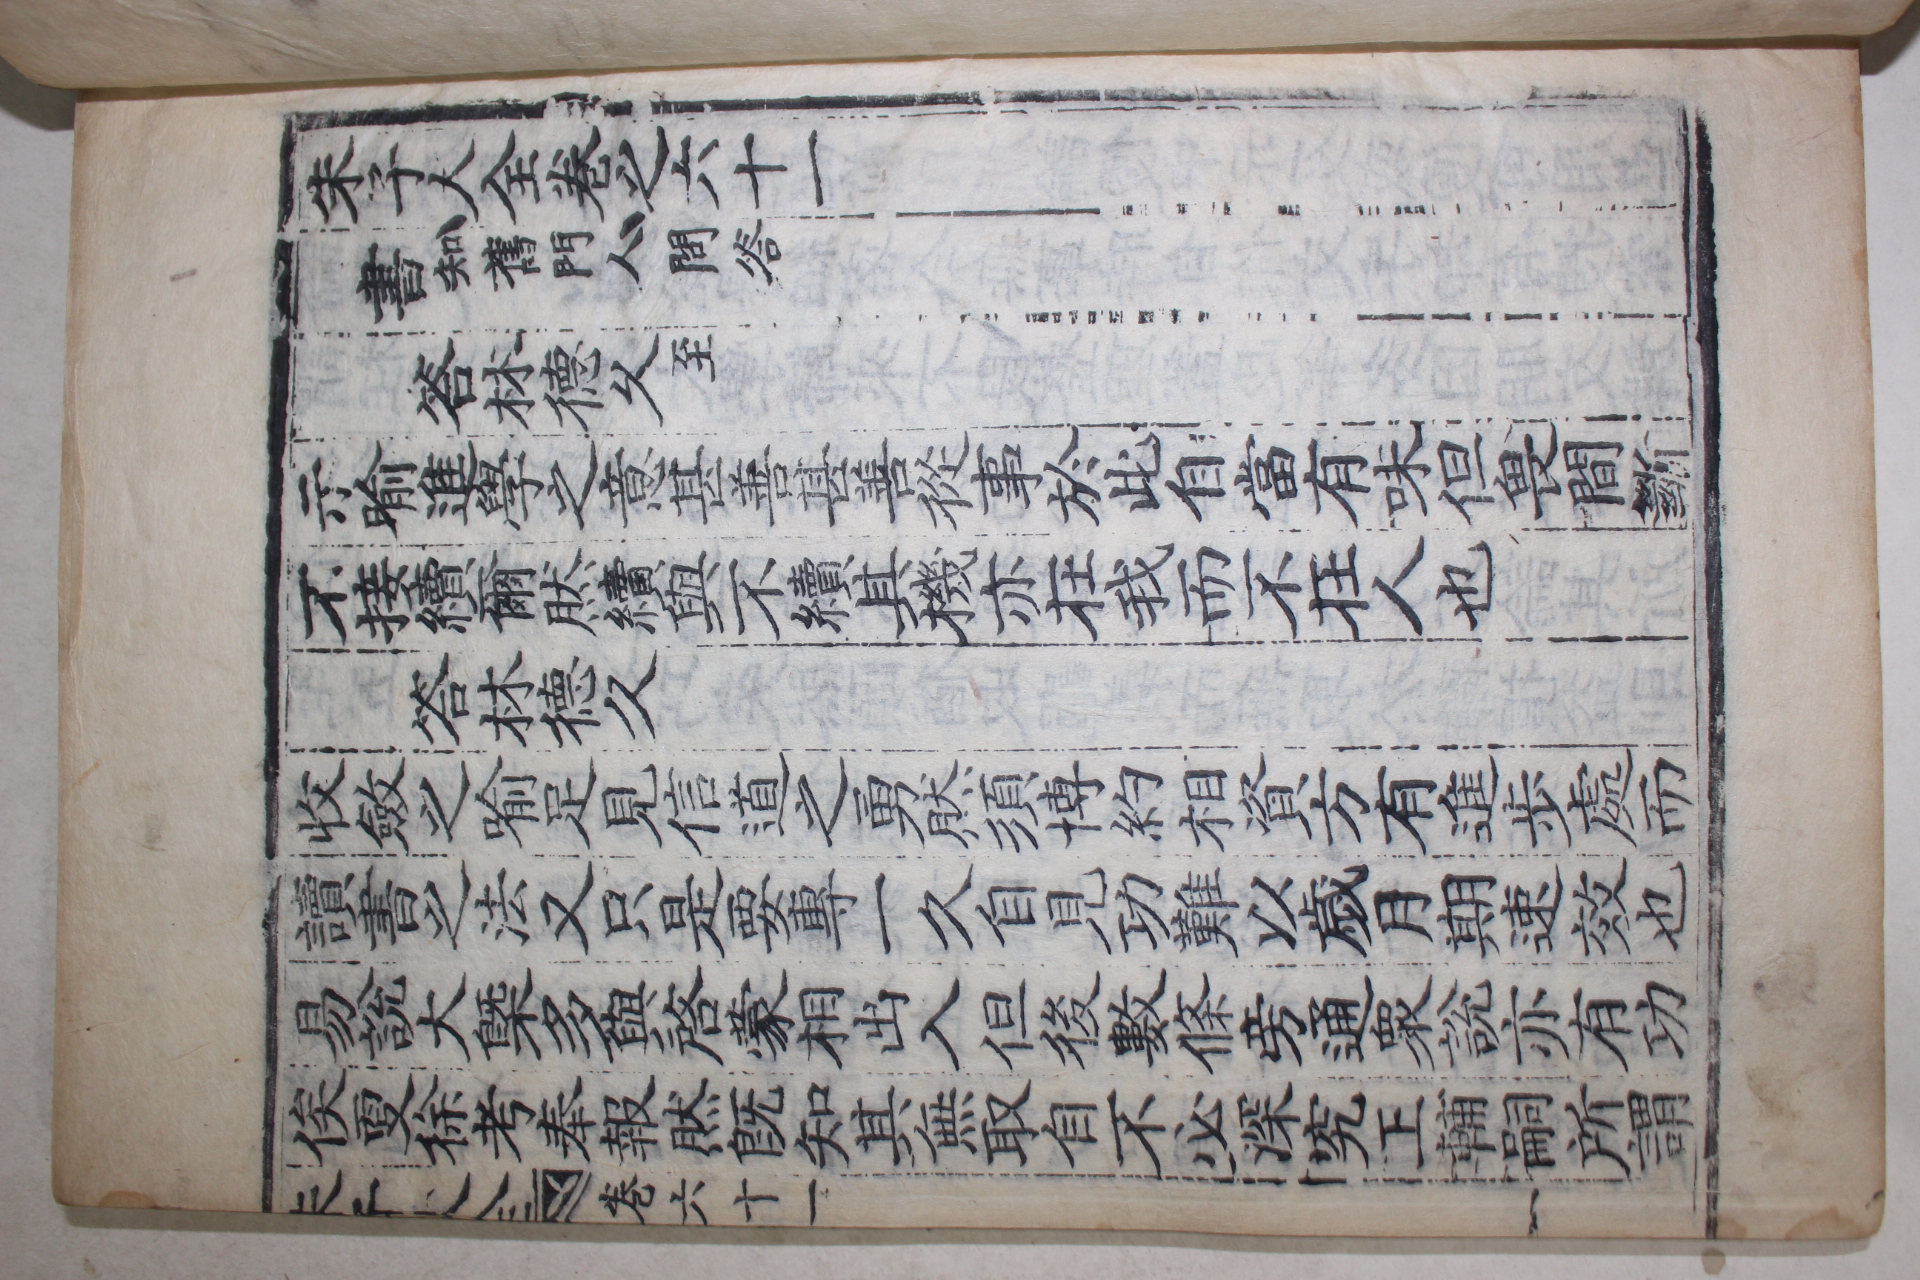 朱子大全卷之六十一
書知舊門人問答
答林德久至
示喻進學之意甚善甚善從事於此自當有味但畏間斷
不接續爾然續與不續其機亦在我而不在人也
答林德久
收斂之喻足見信道之勇然須博約相資方有進步處而
讀書之法又只是要專一久自見功難以歲月期速效也
易說大槩多與啓蒙相出入但後數條旁通衆說亦有功
俟更徐考奉報然旣知其無取自不必深究王輔嗣所謂
朱子大全 卷六十一 一